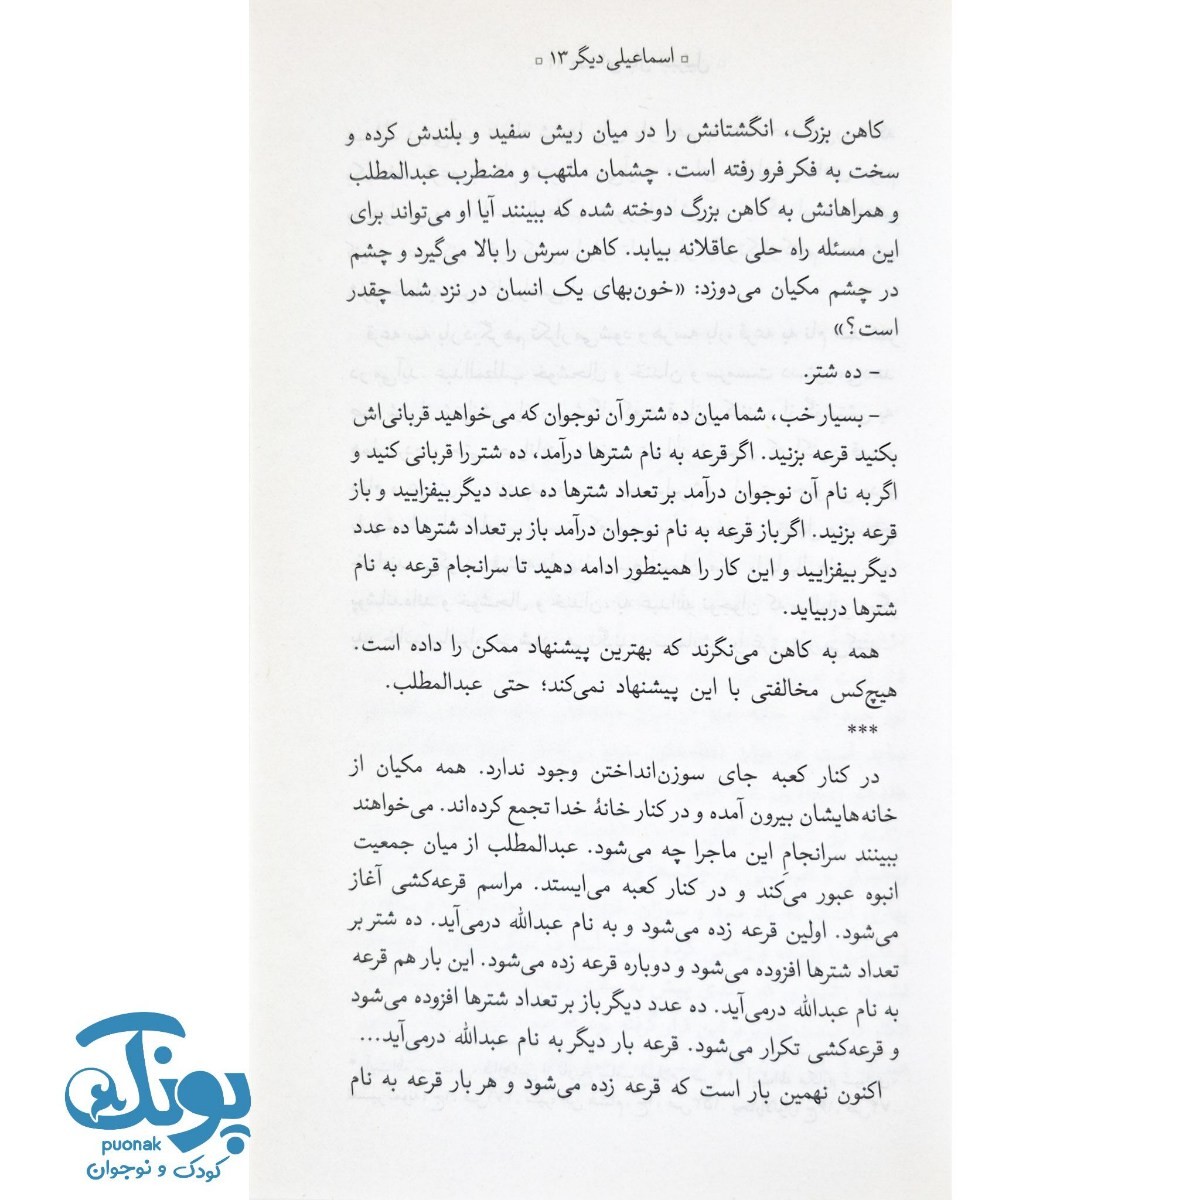 ▫ اسماعیلی دیگر ۱۳ ▫
کاهن بزرگ، انگشتانش را در میان ریش سفید و بلندش کرده و
سخت به فکر فرو رفته است. چشمان ملتهب و مضطرب عبدالمطلب
و همراهانش به کاهن بزرگ دوخته شده که ببینند آیا او می‌تواند برای
این مسئله راه حلی عاقلانه بیابد. کاهن سرش را بالا می‌گیرد و چشم
در چشم مکیان می‌دوزد: «خون‌بهای یک انسان در نزد شما چقدر
است؟»
– ده شتر.
– بسیار خب، شما میان ده شتر و آن نوجوان که می‌خواهید قربانی‌اش
بکنید قرعه بزنید. اگر قرعه به نام شترها درآمد، ده شتر را قربانی کنید و
اگر به نام آن نوجوان درآمد بر تعداد شترها ده عدد دیگر بیفزایید و باز
قرعه بزنید. اگر باز قرعه به نام نوجوان درآمد باز بر تعداد شترها ده عدد
دیگر بیفزایید و این کار را همینطور ادامه دهید تا سرانجام قرعه به نام
شترها دربیاید.
همه به کاهن می‌نگرند که بهترین پیشنهاد ممکن را داده است.
هیچ‌کس مخالفتی با این پیشنهاد نمی‌کند؛ حتی عبدالمطلب.
***
در کنار کعبه جای سوزن‌انداختن وجود ندارد. همه مکیان از
خانه‌هایشان بیرون آمده و در کنار خانهٔ خدا تجمع کرده‌اند. می‌خواهند
ببینند سرانجامِ این ماجرا چه می‌شود. عبدالمطلب از میان جمعیت
انبوه عبور می‌کند و در کنار کعبه می‌ایستد. مراسم قرعه‌کشی آغاز
می‌شود. اولین قرعه زده می‌شود و به نام عبدالله درمی‌آید. ده شتر بر
تعداد شترها افزوده می‌شود و دوباره قرعه زده می‌شود. این بار هم قرعه
به نام عبدالله درمی‌آید. ده عدد دیگر باز بر تعداد شترها افزوده می‌شود
و قرعه‌کشی تکرار می‌شود. قرعه بار دیگر به نام عبدالله درمی‌آید...
اکنون نهمین بار است که قرعه زده می‌شود و هر بار قرعه به نام
پونک
puonak
کودک و نوجوان